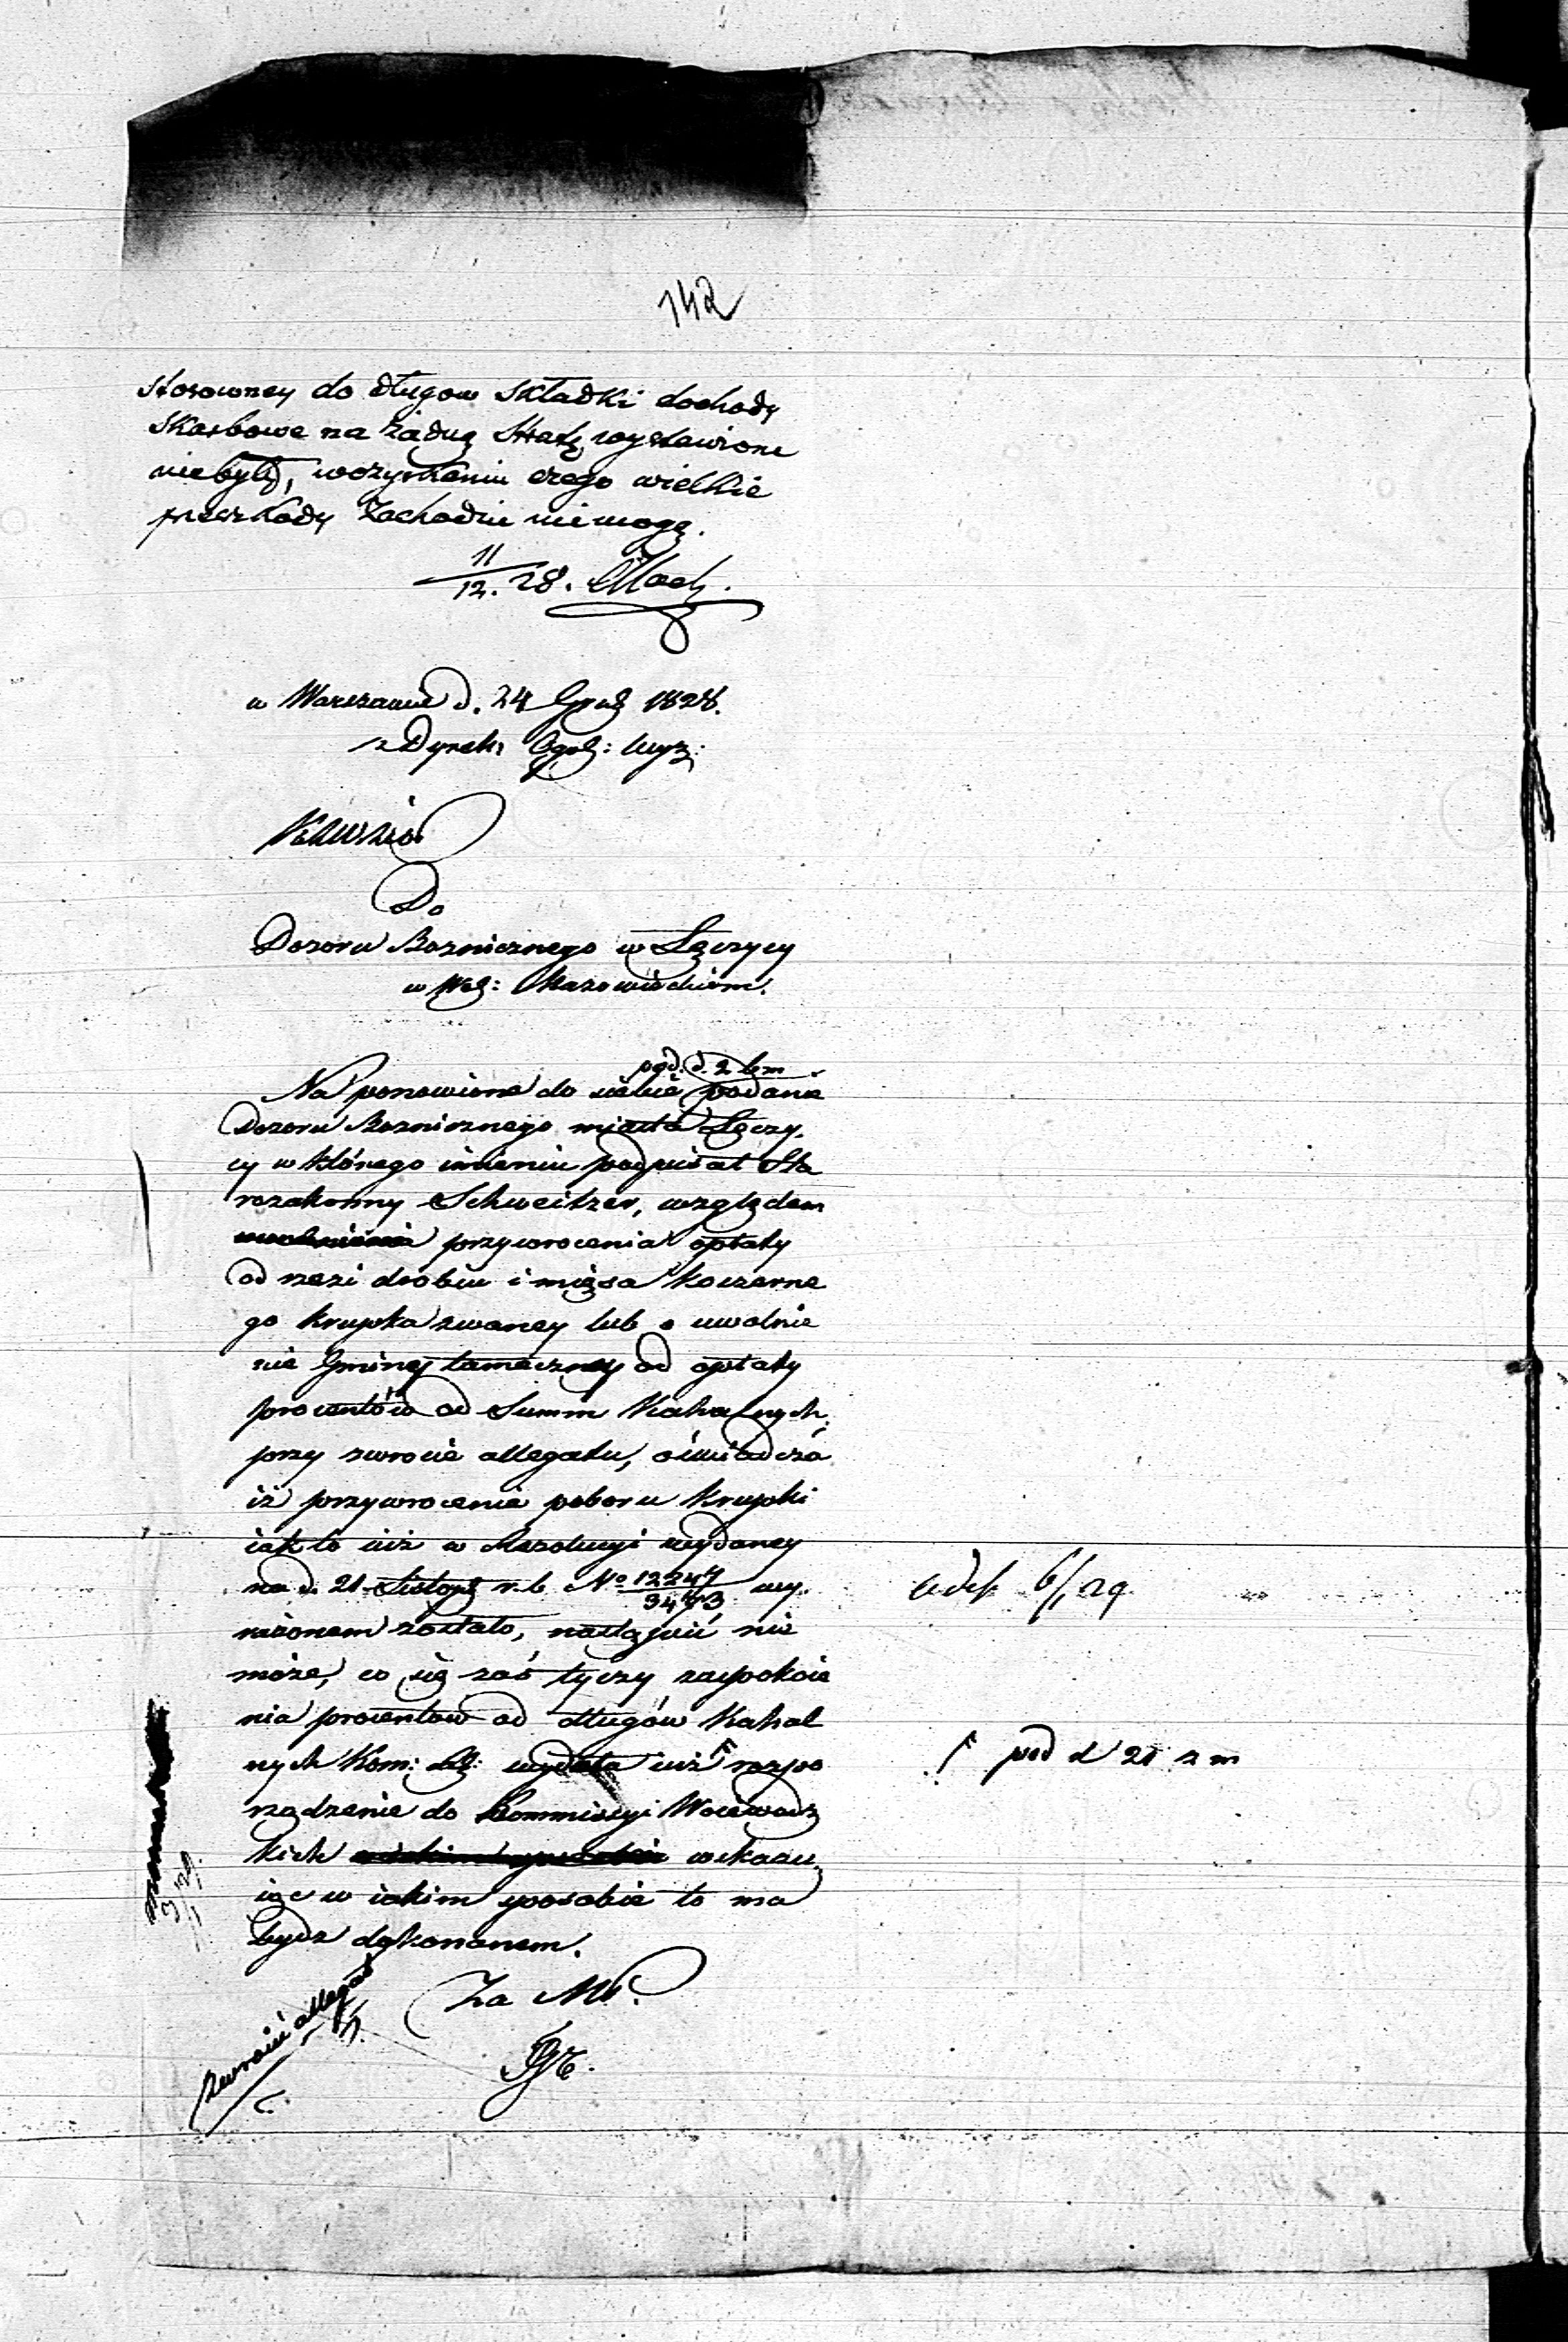 142
stosowney do długow składki dochody
Skarbowe na żadną stratę wystawione
niebyły, w czego wielkie
przeszkody zachodzić niemogą.
11/12. 28.
w Warszawie d. 24 Grud 1828.
z Dyrek: Ogol:
Do
Dozoru Boznicznego w Łęczycy
w Wdz: Mazowieckiem.
pod. d. 2 b m
Na ponowione do siebie podanie
Dozoru Boznicznego miasta Łęczy,
cy w którego imieniu podpisał Sta
rozakonny Schweitzer, względem
przywrocenia opłaty
od rzezi drobiu i mięsa koszerne
go krupka zwaney lub o uwolnie
nie Gminy tameczney od opłaty
procentów od Summ Kahalnych,
przy zwrocie allegatu, oświadcza
iż przywrocenie poboru krupki
iak to iuż w Rezolucyi wydaney
na d. 21 Listopd r. b. No 12247/3473 wy,
rażonem zostało, nastąpić nie
może, co się zaś tyczy zaspokoie
nia procentow od długów Kahal
nych Kom: Rz: wydała iuż rozpo
rządzenie do Kommissyi Woiewodz
kich wskazu,
iąc w iakim sposobie to ma
bydź dokonanem.
Za Mi.
zwrocić allegat
6/1 29
pod d 21 z m